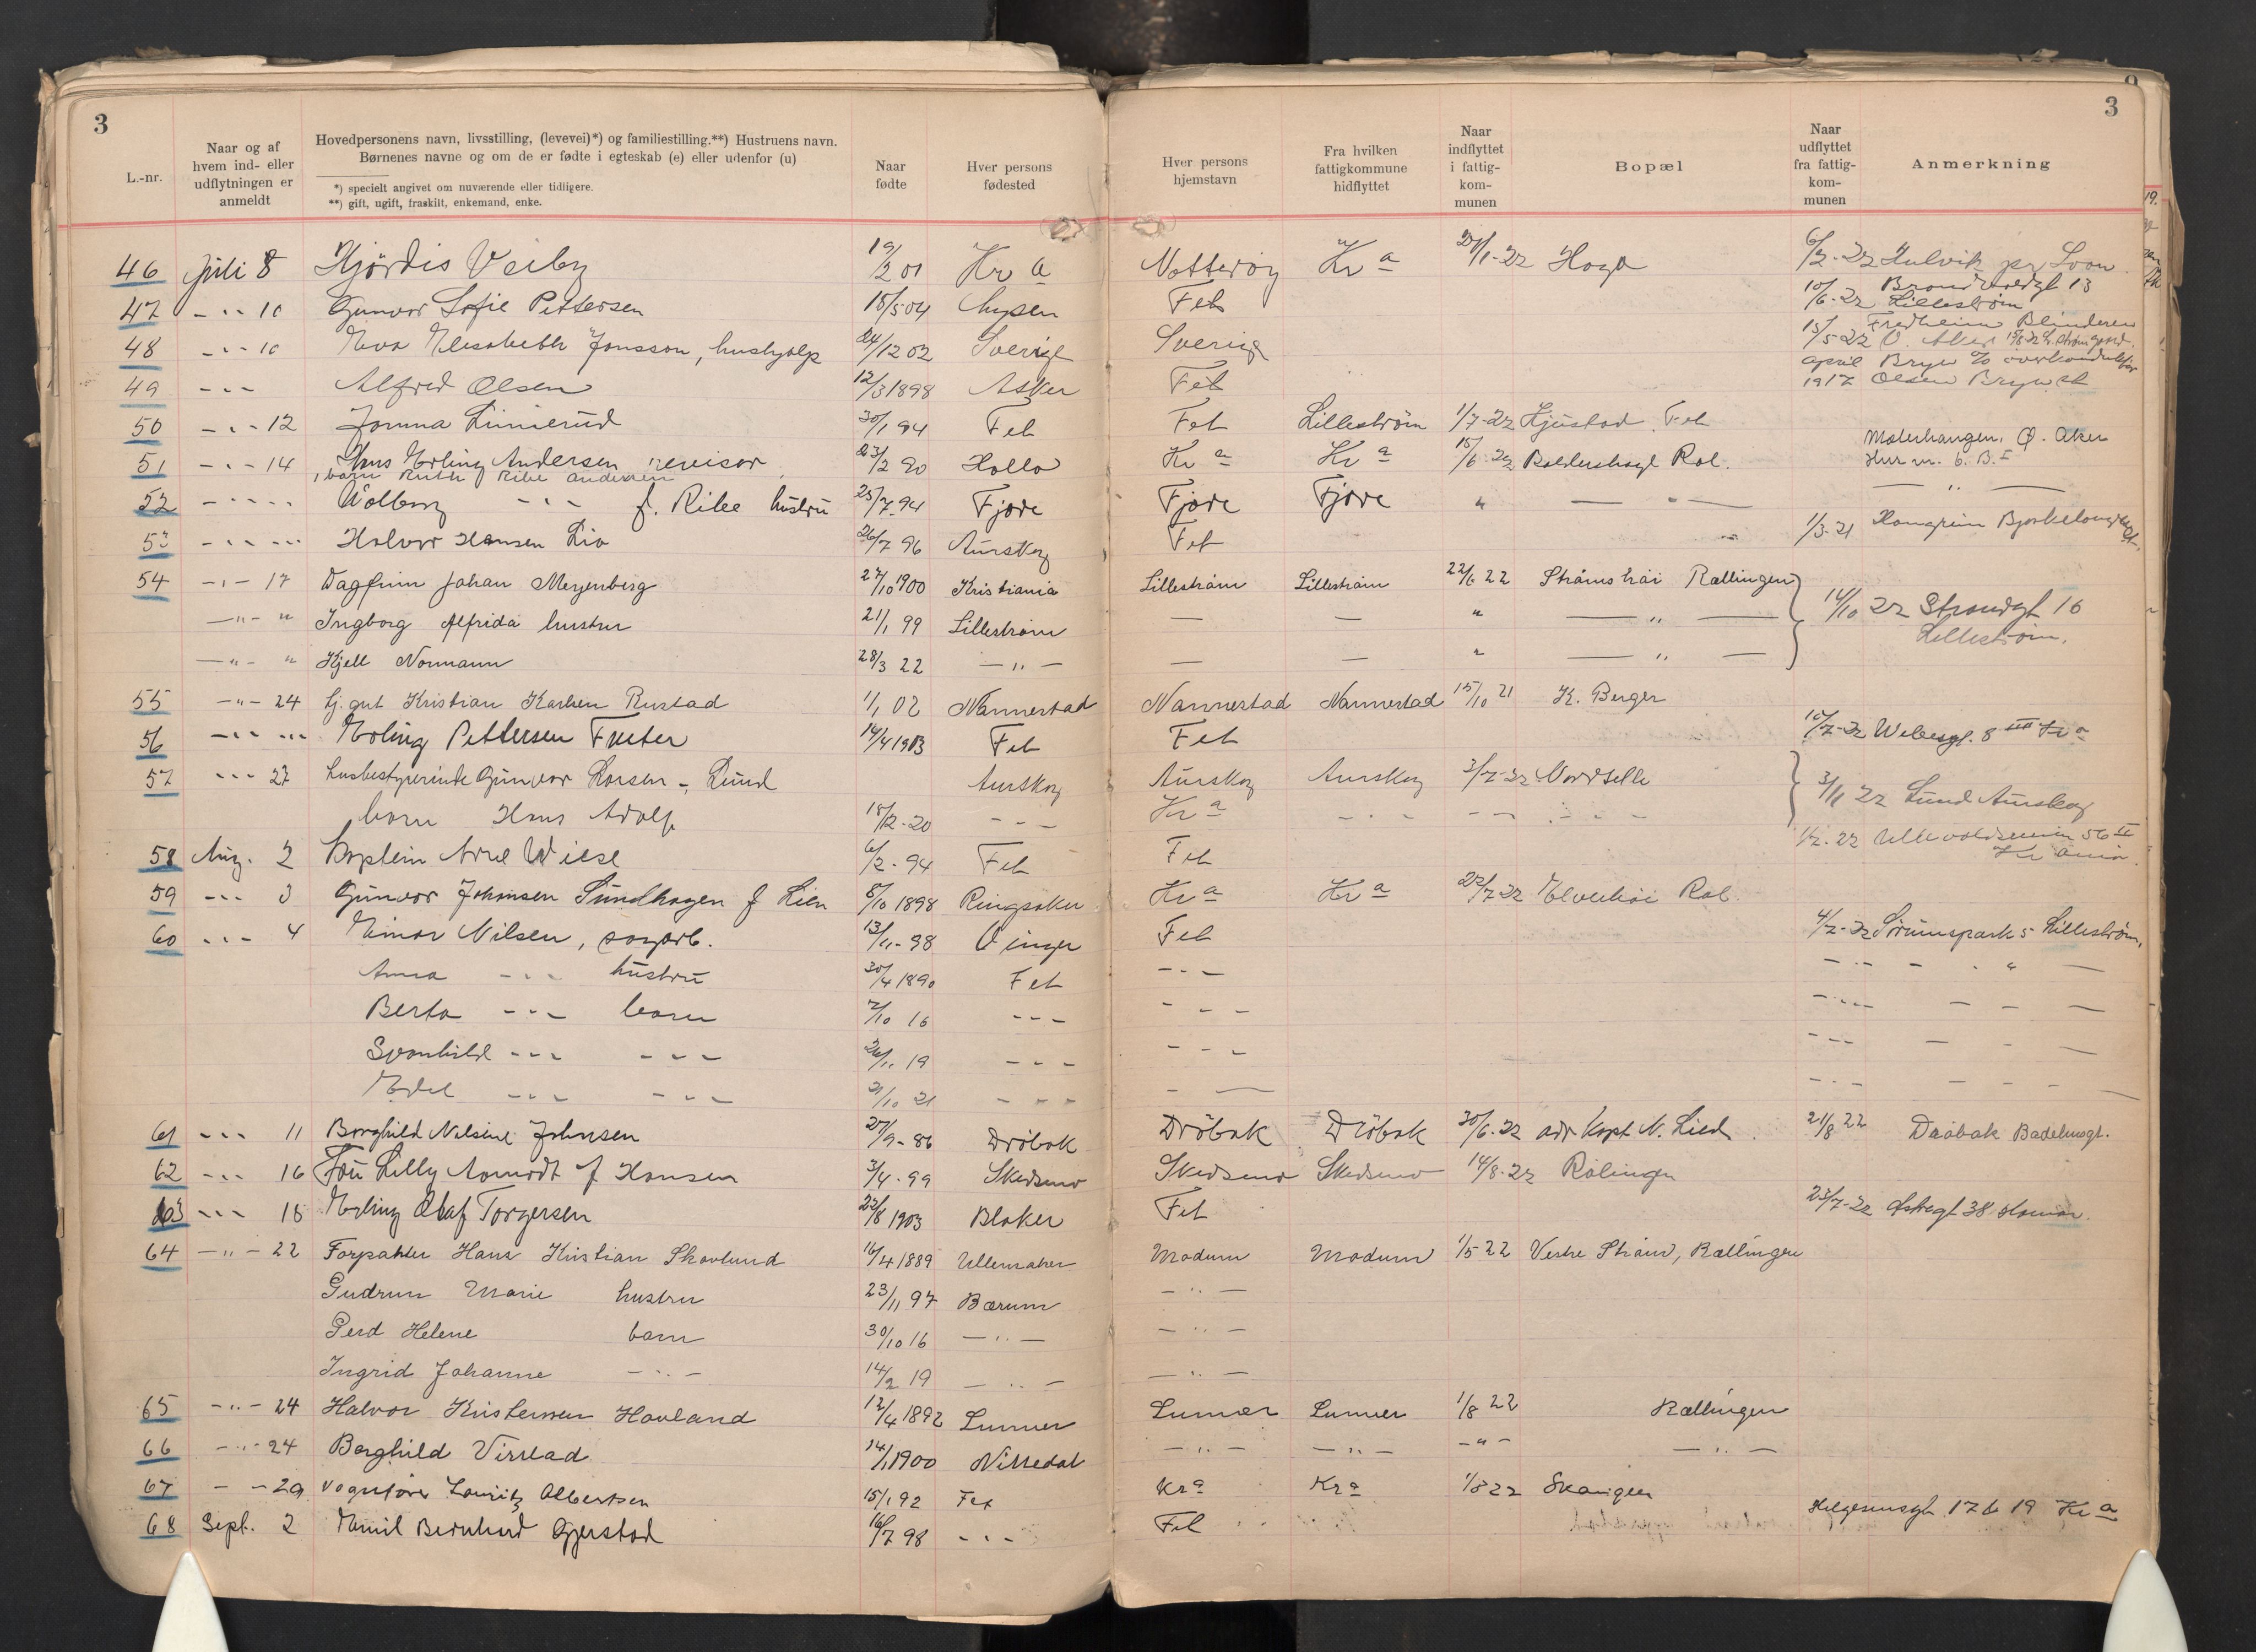 3
L.-nr.
Naar og af hvem ind- eller udflytningen er anmeldt
Hovedpersonens navn, livsstilling, (levevei)*) og familiestilling.**) Hustruens navn.
Børnenes navne og om de er fødte i egteskab (e) eller udenfor (u)
*) specielt angivet om nuværende eller tidligere.
**) gift, ugift, fraskilt, enkemand, enke.
Naar fødte
Hver persons fødested
Hver persons hjemstavn
Fra hvilken fattigkommune hidflyttet
Naar indflyttet i fattig-kom-munen
Bopæl
Naar udflyttet fra fattig-kom-munen
Anmerkning
3
46 Juli 8 Hjørdis Veiby 19/2 01 Kr a Nøtterøy Kr a 27/1-22 Haga 6/2-22 Hulvik pr
47 - " - 10 Gunvor Sofie Pettersen 18/5 04 Fet 10/6-22 13 Lillestrøm
48 - " - 10 Eva Elisabeth Jonsson, hushjælp 24/12 02 Sverige Sverige 15/5-22 Fredheim Blinderen V. Aker
49 - " - Alfred Olsen 12/3 1898 Asker Fet april 1917 Bryn Olsen Bryn st
50 - " - 12 Jomna Linnerud 30/1 94 Fet Fet Lillestrøm 1/7-22 Fet
51 - " - 14 Hans Erling Andersen revisor 23/2 90 Holla Kr a Kr a 15/6-22 Ral. Østre Aker
barn Ruth Ribe Andersen
52 - " - Valborg - " - f. Ribe hustru 25/7 94 Fjære Fjære Fjære " - " - - " -
53 - " - Halvor Hansen Lia 26/7 96 Aurskog Fet 1/3-21
54 - " - 17 Dagfinn Johan Meyenberg 27/10 1900 Kristiania Lillestrøm Lillestrøm 22/6 22 Rællingen 14/10 22 Strandgt 16 Lillestrøm.
- " - " Ingborg Alfrida hustru 21/1 99 Lillestrøm — — " — " —
- " - " Kjell Normann 28/3 22 - " - — — " — " —
55 - " - 24 Kristian Karlsen Rustad 1/1 02 Nannestad Nannestad Nannestad 15/10 21 K. Berger
56 - " - Erling Pettersen Fueter 14/4 1903 Fet Fet 10/7-22 8 III Kr a
57 - " - 27 husbestyrerinde Gunvor Larsen - Lund Aurskog Aurskog Aurskog 3/7-22 Nordsetle 3/11 22 Lund Aurskog
barn Hans Adolf 18/12-20 - " - Kr a - " - - " - - " -
58 Aug. 2 Kaptein Arne Wiese 6/2-94 Fet Fet 1/2-22 Ullevoldsveien 56 II
59 - " - 3 Gunvor Johansen Sundhagen f Lien 8/10 1898 Ringsaker Kr a Kr a 22/7-22 Elvehøi Ral.
60 - " - 4 Einar Nilsen, sagarb. 13/11-98 Vinger Fet 4/2-22 Sørumspark 5 Lillestrøm,
Anna - " - hustru 30/4 1890 Fet - " - - " -
Berta - " - barn 2/10 16 - " - - " - - " -
Svanhild - " - - " - 26/11 19 - " - - " - - " -
Edel - " - - " - 21/10 21 - " - - " -
61 - " - 11 Borghild Nilsine Johnsen 27/9-86 Drøbak Drøbak Drøbak 30/6-22 adr Kapt N. Lied 21/8 22 Drøbak Badehusgt.
62 - " - 16 Fru Lilly Aamodt f Hansen 3/4-99 Skedsmo Skedsmo Skedsmo 14/8-22 Rælingen
63 - " - 18 Erling Olaf Torgersen 22/8 1903 Blaker Fet 23/7-22 38 Hamar.
64 - " - 22 Forpakter Hans Kristian Skavlund 16/4 1889 Ullensaker Modum Modum 1/5 22 Vestre Strøm, Rællingen
Gudrun Marie hustru 23/11 97 Bærum - " -
Gerd Helene barn 30/10 16 - " - - " -
Ingrid Johanne - " - 14/2 19 - " - - " -
65 - " - 24 Halvor Kristensen Hovland 12/4 1892 Lunner Lunner Lunner 1/8 22 Rællingen
66 - " - 24 Borghild Virstad 14/1 1900 Nittedal - " - - " - - " - - " -
67 - - 29 Vognfører Lauritz Albertsen 15/1 92 Fet Kr a Kr a 1/8 22
68 Sept. 2 Emil Bernhard Gjerstad 16/7 98 - " - Fet Helgesensgt. 17 b 19 Kr a